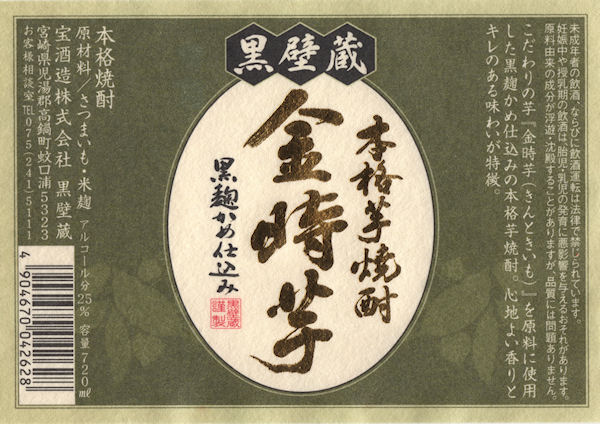 未成年者の飲酒、ならびに飲酒運転は法律で禁じられています。
妊娠中や授乳期の飲酒は、胎児・乳児の発育に悪影響を与えるおそれがあります。
原料由来の成分が浮遊・沈殿することがありますが、品質には問題ありません。
こだわりの芋「金時芋（きんときいも）」を原料に使用
した黒麹かめ仕込みの本格芋焼酎。心地よい香りと
キレのある味わいが特徴。
黒壁蔵
本格芋焼酎
金時芋
黒麹かめ仕込み
黒壁蔵
謹製
本格焼酎
原材料／さつまいも・米麹 アルコール分25% 容量720㎖
宝酒造株式会社 黒壁蔵
宮崎県児湯郡高鍋町蚊口浦5323
お客様相談室 TEL075(241)5111
4904670042628